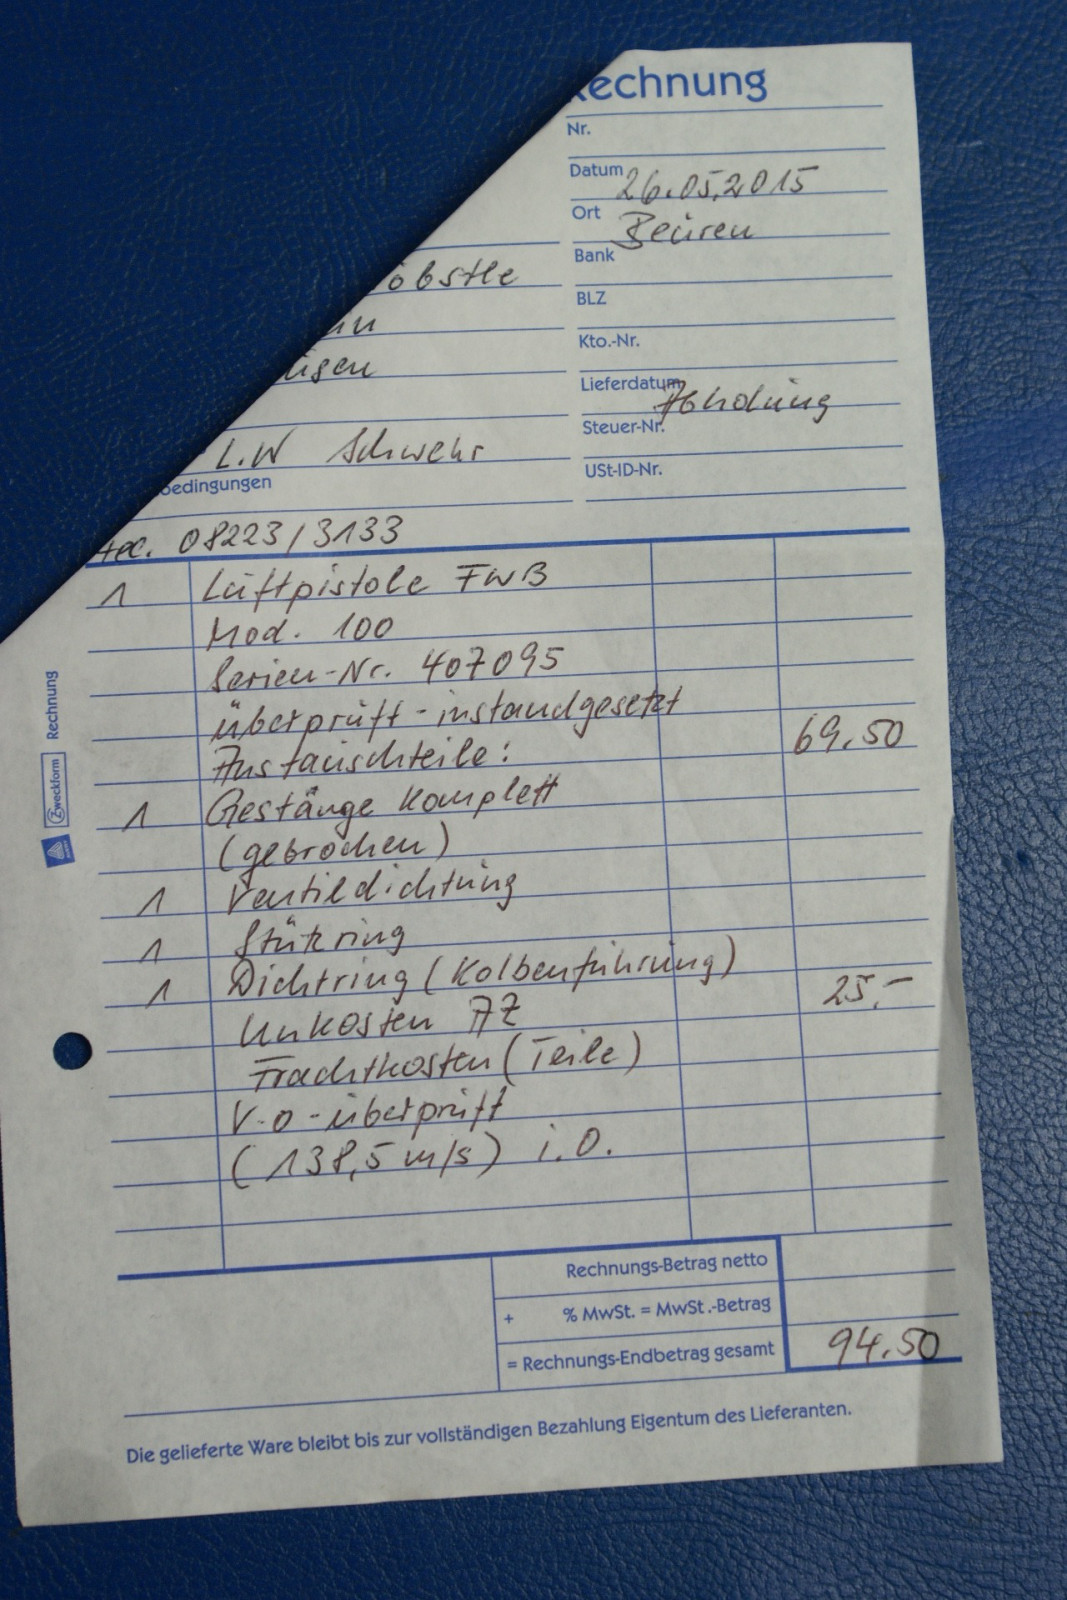 Rechnung
Nr.
Datum 26.05.2015
Ort Beuren
Bank
öbstle
BLZ
Kto.-Nr.
usen
Lieferdatum Abholung
Steuer-Nr.
L.W Schwehr
USt-ID-Nr.
bedingungen
Tel. 08223/3133
1 Luftpistole FWB
Mod. 100
Serien-Nr. 407095
überprüft - instandgesetzt
69.50
Austauschteile:
1 Gestänge komplett
(gebrochen)
1 Ventildichtung
1 Stützring
1 Dichtring (Kolbenführung)
25,-
Unkosten AZ
Frachtkosten (Teile)
V-0 - überprüft
(138,5 m/s) i.O.
Rechnungs-Betrag netto
+ % MwSt. = MwSt.-Betrag
= Rechnungs-Endbetrag gesamt 94.50
Die gelieferte Ware bleibt bis zur vollständigen Bezahlung Eigentum des Lieferanten.
Zweckform Rechnung